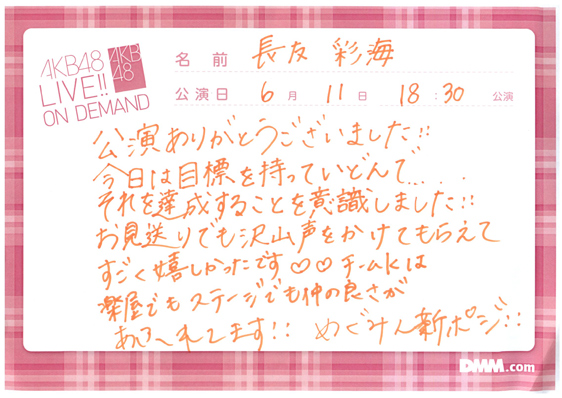 AKB48
LIVE!!
ON DEMAND
AKB
48
名前 長友 彩海
公演日 6月 11日 18:30 公演
公演ありがとうございました!!
今日は目標を持っていどんで....
それを達成することを意識しました!!
お見送りでも沢山声をかけてもらえて
すごく嬉しかったです♡♡チームKは
楽屋でもステージでも仲の良さが
あふれてます!! めぐみん新ポジ!!
DMM.com